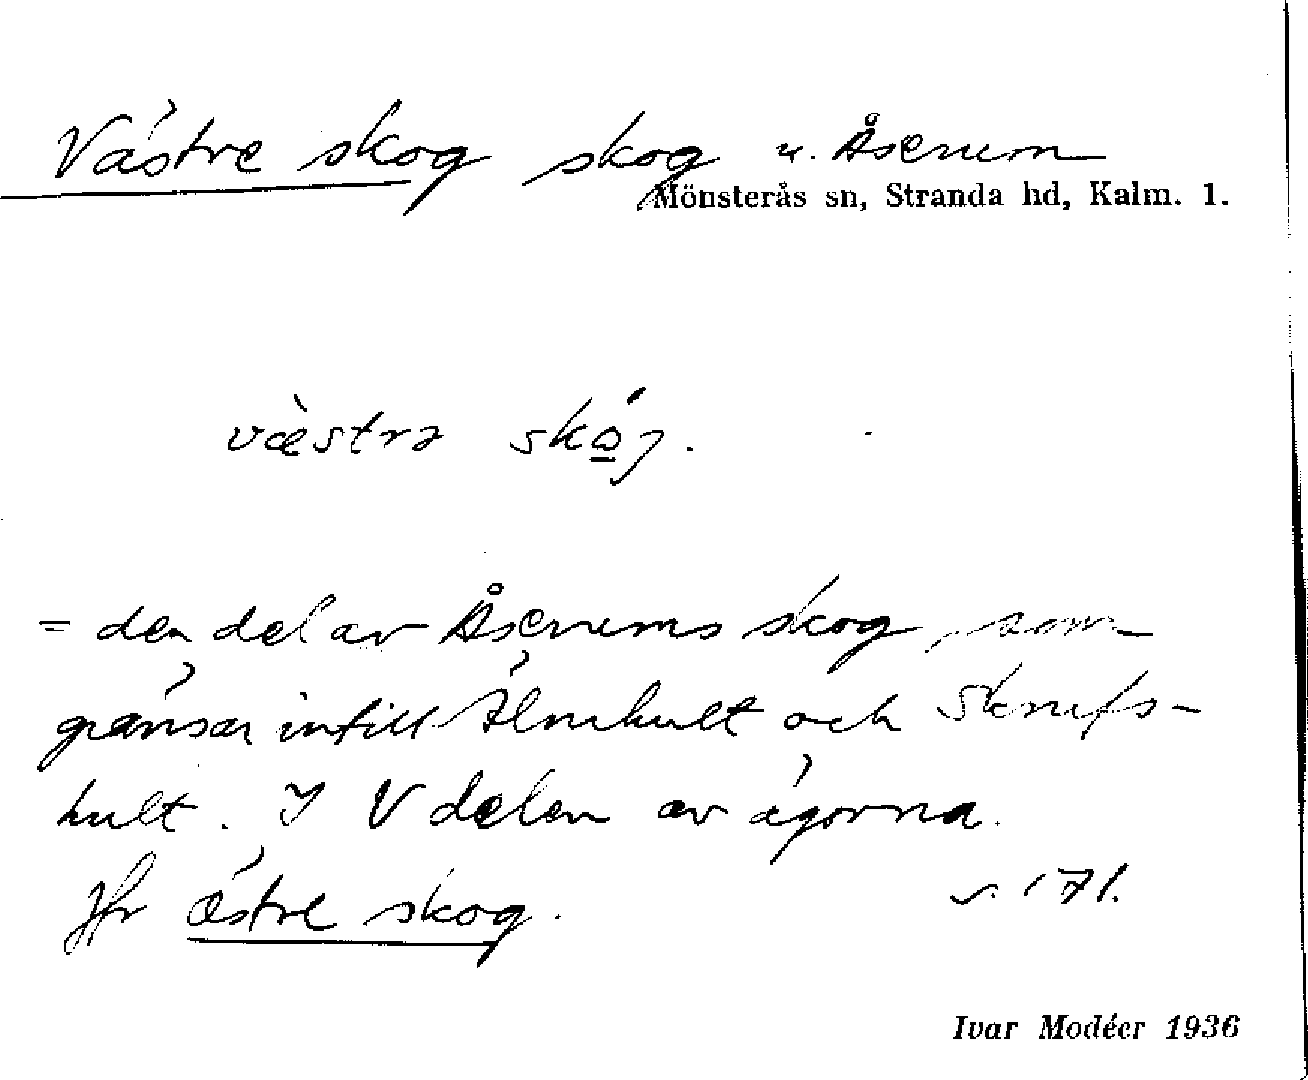 Västre skog skog u. Åserum
Mönsterås sn, Stranda hd, Kalm. l.
væstrə skǫ́g.
= den del av Åserums skog, som
gränsar intill Älmhult och Skrufs-
hult. I V delen av ägorna.
Jfr östre skog. s. 171.
Ivar Modéer 1936